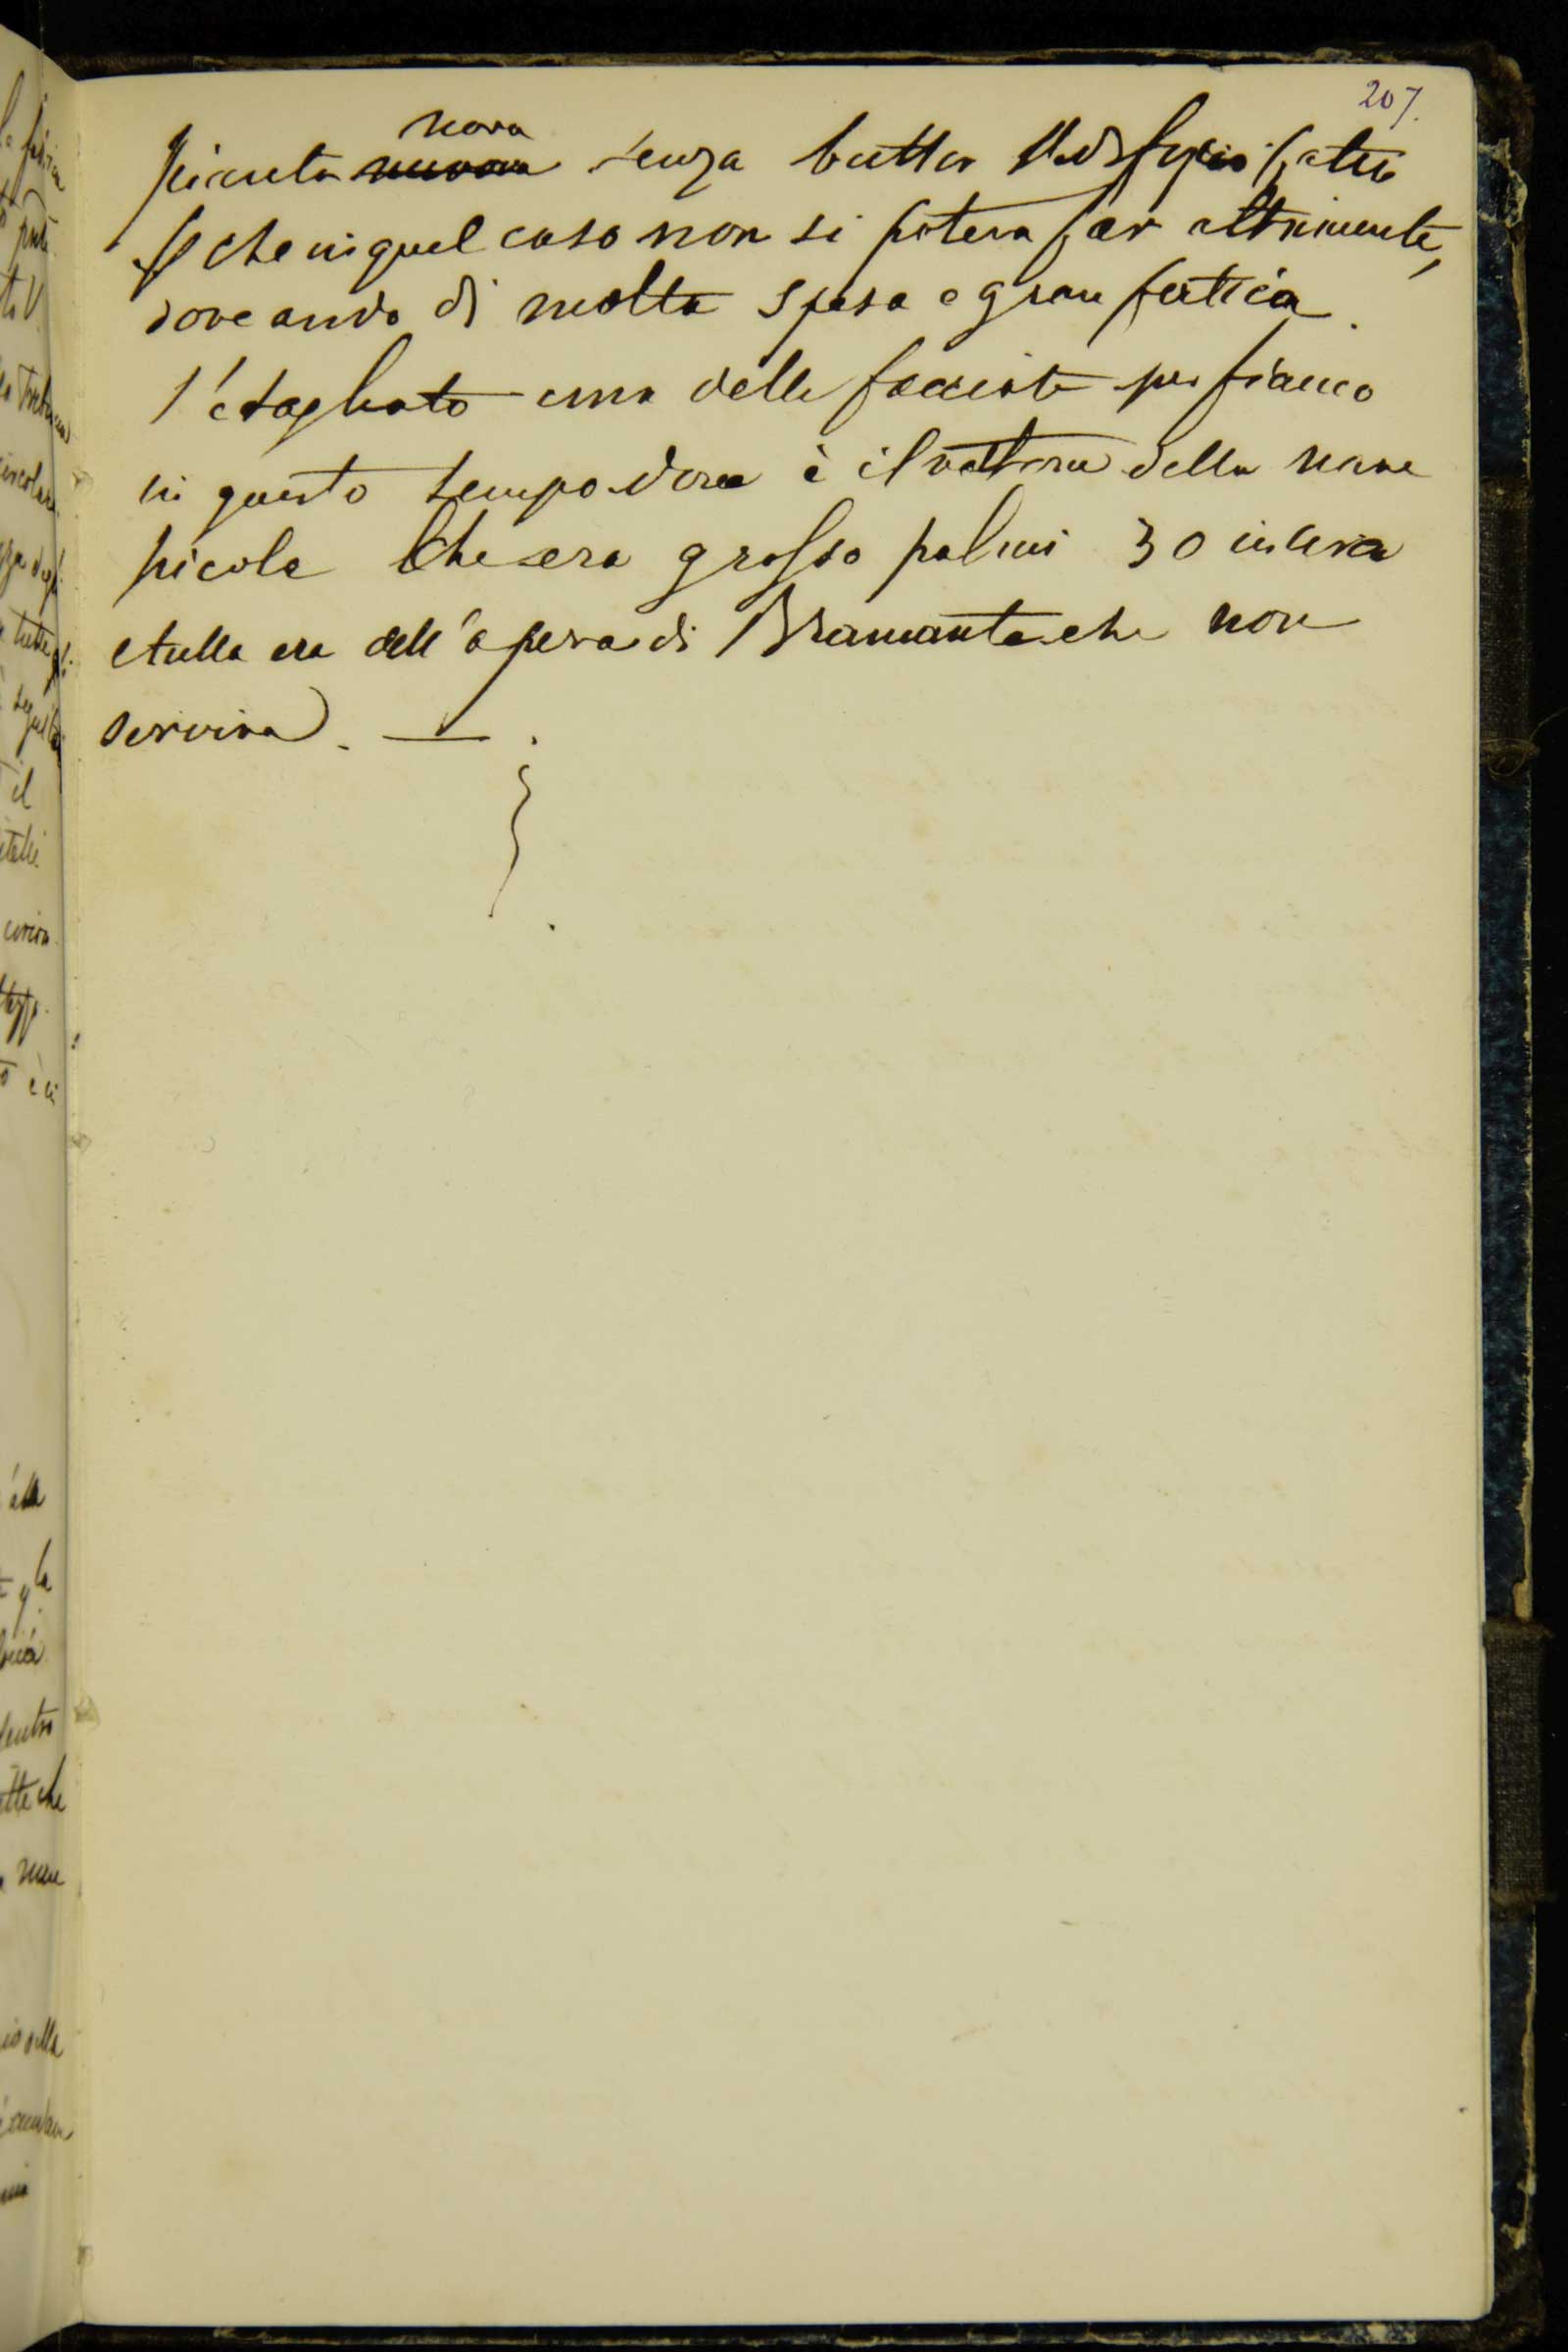 207.
nova
pianta nuova senza buttar l'edifyzio fatto
che in quel caso non si poteva far altrimente,
dove ando di molta spesa e gran faticia.
S'é tagliato una delle facciate per fianco
in questo tempo dove è il voltone della nave
picola che era grosso palmi 30 in circa
e tutta era dell'opera di Bramante che non
serviva. —